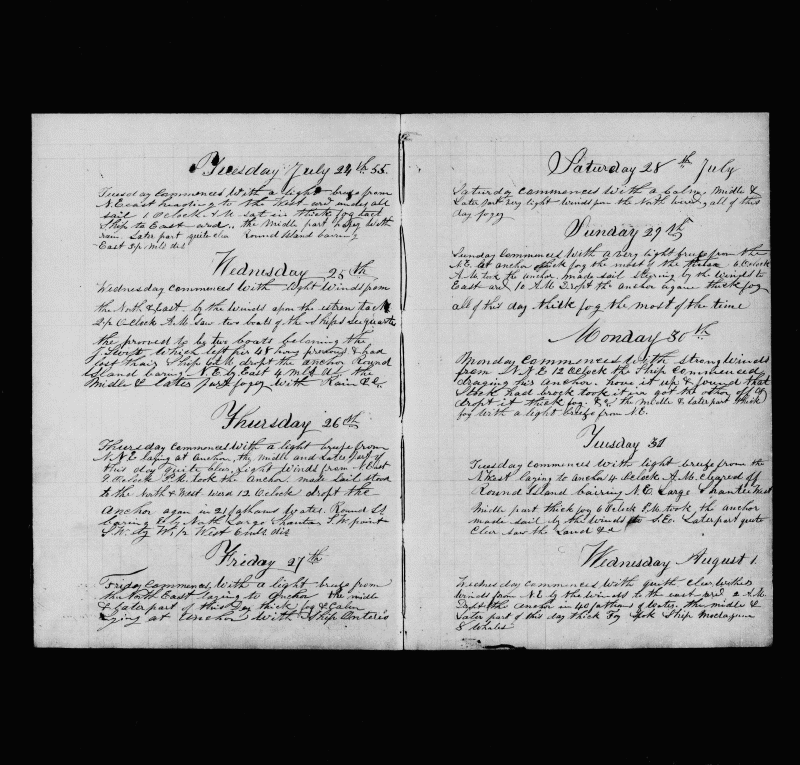 Tuesday July 24th 55.
Tuesday Commences With a light breeze from
N East heading to the West ard under all
sail 1 Oclock A.M. in thick fog tact
Ship to East ard.. the Middle part fogey With
rain Later part quite clea Round Island bairing
East 3/2 mls dis
Wednesday 25th
Wednesday Commences With light Winds from
the North & East by the Winds upon the tack
2 P OClock A.M. Saw two boats of the Ships Starbord quarter
the proved to by two boats belonging the
J. Swift Which left her 48 hours & had
lost thair Ship 6 P.M. dropt the anchor Round
Island baring N.E. by East 4 mls dis the
Middle & later part fogey With Rain &c.
Thursday 26th
Thursday Commences With a light breeze from
N.N.E. laying at Anchor. the middle and Later part of
this day quite clear. light Winds from N East
9 Oclock P.M. took the Anchor made sail stood
to the North & West Ward 12 Oclock dropt the
Anchor agan in 21 fathams Water. Round Isl
baring E by North Large Shantar S.W. point
S.W. by W. 1/2 West End dis
Friday 27th
Friday Commences With a light breeze from
the North East laying to Anchor the midle
& later part of this Day thick fog & Calm
Lying at Anchor With Ship Ontario
Saturday 28th July
Saturday Commences With a Calm, Midle &
Later part very light Winds from the North Ward all of this
day fogey
Sunday 29th
Sunday Commences With a very light breeze from the
N.E. at anchor thick fog the most of the time 6 Oclock
A.M. took the anchor made sail by the Winds to
East ard 10 A.M. Dropt the anchor again thick fog
all of this day thick fog the most of the time
Monday 30th
Monday Commences With strong Winds
from N.N.E. 12 Oclock the Ship Commenced
draging her anchor. hove it up & found that
Stock had brock took it in got the other off &
dropt it thick fog. &c the middle & later part thick
fog With a light breeze from N.E.
Tuesday 31
Tuesday Commences With light breeze from the
N East laying to Anchor 4 Oclock A.M. Cleared off
Round Island bairing N.E. Large Shantar West
Middle part thick fog 6 Oclock P.M. took the anchor
made sail by the Winds to S.E. Later part quite
Clear Saw the Land &c
Wednesday August 1
Wednesday Commences With quite Clear Wether
Winds from N.E. by the Winds to the east ard 2 A.M.
Dropt the Anchor in 40 fathams of Water. the midle &
Later part of this day thick Fog Spok Ship
8 Whales